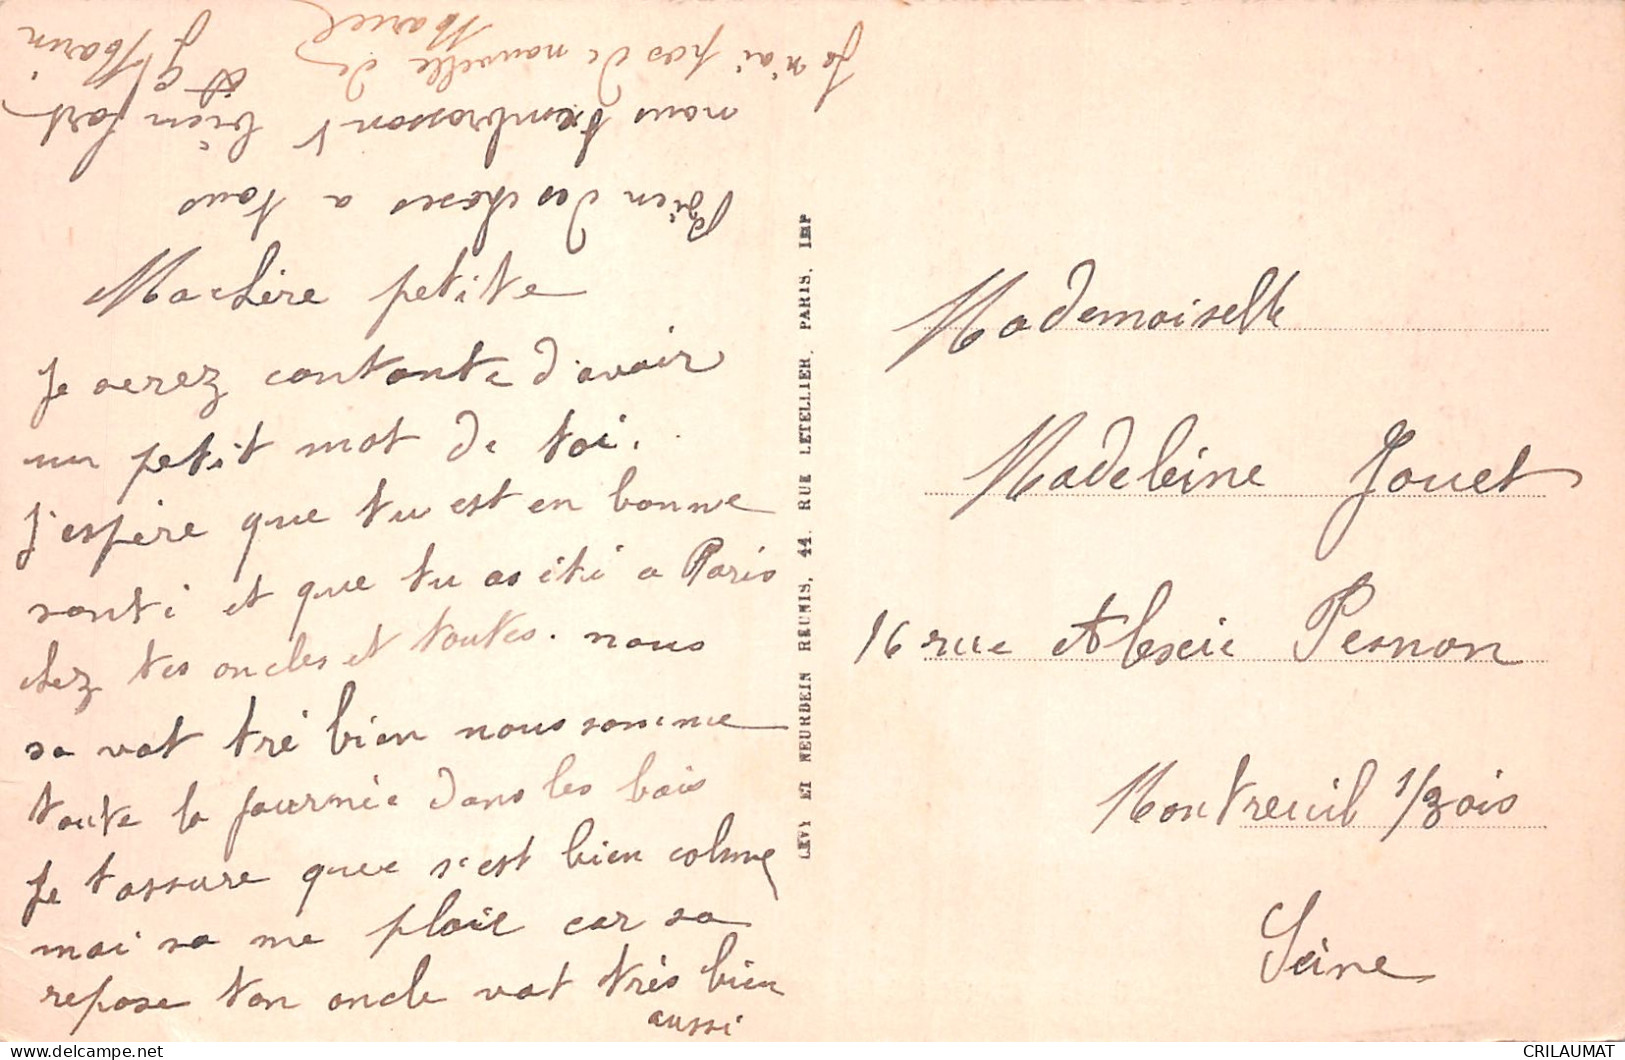 Ma chère petite
Je serez contante d'avoir
un petit mot de toi.
J'espère que tu est en bonne
santé et que tu as été a Paris
chez tes oncles et toutes. nous
sa vat tré bien nous somme
toute la journée dans les bois
Je tassure quee s'est bien calme
mai sa me plait car sa
repose ton oncle vat très bien
aussi
Bien des choses a tous
nous t'embrasson bien fort
Je n'ai pas de nouvelle de
Marcel
LEVY ET NEURDEIN REUNIS, 44, RUE LETELLIER, PARIS. IMP
Mademoiselle
Madeleine Jouet
16 rue Alexie Pesnon
Montreuil s/Bois
Seine
CRILAUMAT